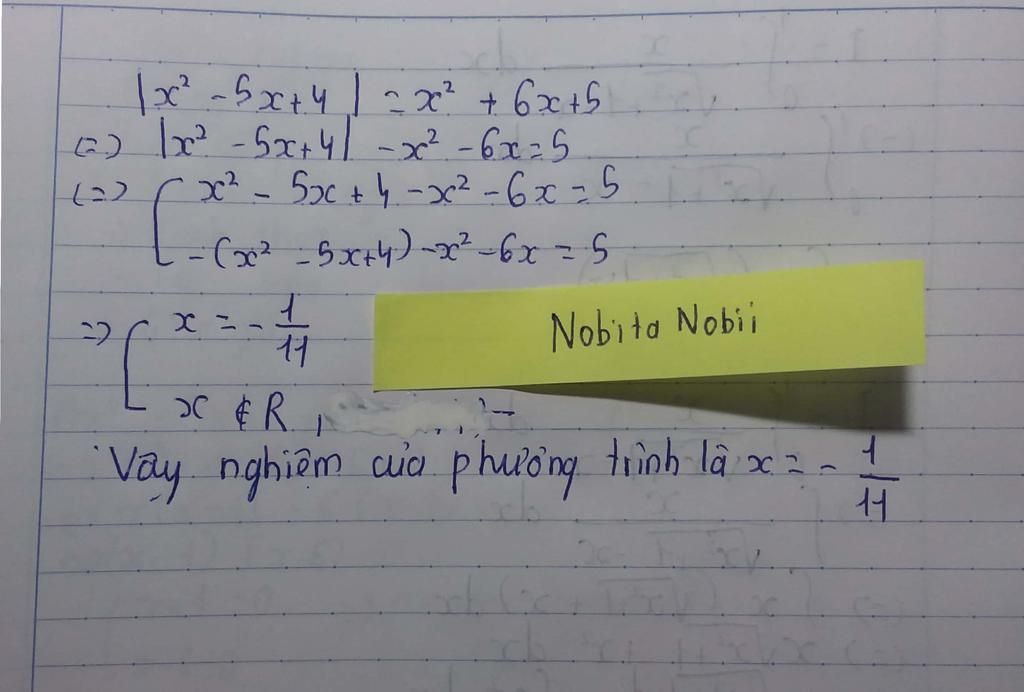 |x² - 5x+4| = x² + 6x+5
(=) |x² - 5x+4| - x² - 6x = 5
(=) [ x² - 5x + 4 - x² - 6x = 5
-(x² - 5x+4) - x² - 6x = 5
=) [ x = - 1/11
Nobita Nobii
x ∉ R,
Vậy nghiệm của phương trình là x = - 1/11